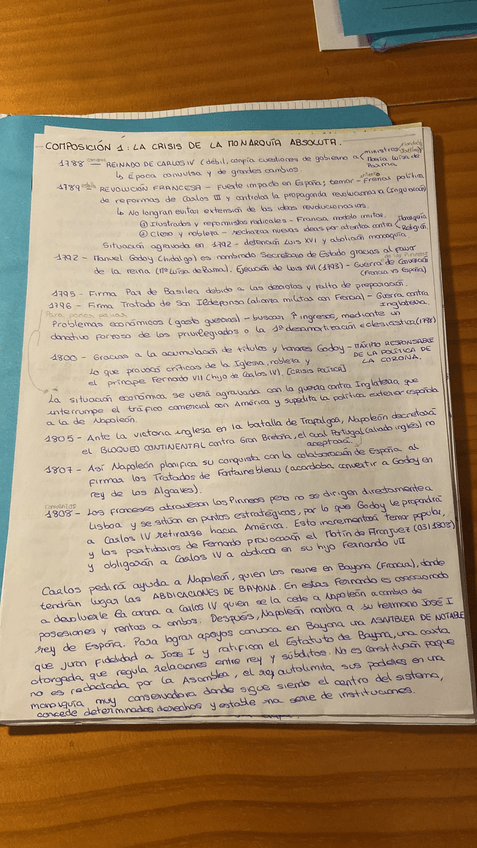 COMPOSICIÓN 1: LA CRISIS DE LA MONARQUÍA ABSOLUTA.
1788 — REINADO DE CARLOS IV (débil, confía cuestiones de gobierno a ministros María Luisa de Parma
↳ Época convulsa y de grandes cambios.
1789 REVOLUCIÓN FRANCESA - Fuerte impacto en España; temor - Frenas política
de reformas de Carlos III y controla la propaganda revolucionaria (Inquisición)
↳ No logran evitar extensión de las ideas revolucionarias.
① Ilustrados y reformistas radicales - Francia, modelo imitar.
② Clero y nobleza - rechaza nuevas ideas por atentar contra Monarquía Religión
Situación agravada en 1792 - detención Luis XVI y abolición monarquía
1792 - Manuel Godoy (hidalgo) es nombrado Secretario de Estado gracias al favor
de la reina (Mª Luisa de Parma). Ejecución de Luis XVI (1793) - Guerra de Convención
(Francia vs España)
1795 - Firma Paz de Basilea debido a las derrotas y falta de preparación.
1796 - Firma Tratado de San Ildefonso (alianza militar con Francia) - Guerra contra Inglaterra.
Problemas económicos (gasto guerras) - buscan ↑ ingresos, mediante un
donativo forzoso de los privilegiados o la 1ª desamortización eclesiástica (1798)
1800 - Gracias a la acumulación de títulos y honores Godoy - MÁXIMO RESPONSABLE
DE LA POLÍTICA DE
LA CORONA.
Lo que provocó críticas de la Iglesia, nobleza y
el príncipe Fernando VII (hijo de Carlos IV). [CRISIS POLÍTICA]
La situación económica se verá agravada con la guerra contra Inglaterra que
interrumpe el tráfico comercial con América y supedita la política exterior española
a la de Napoleón.
1805 - Ante la victoria inglesa en la batalla de Trafalgar, Napoleón decretará
el BLOQUEO CONTINENTAL contra Gran Bretaña, el cual Portugal (aliado inglés) no
aceptará.
1807 - Así Napoleón planifica su conquista con la colaboración de España al
firmar los Tratados de Fontainebleau (acordaba convertir a Godoy en
rey de los Algarves).
1808 - Los franceses atraviesan los Pirineos pero no se dirigen directamente a
Lisboa y se sitúan en puntos estratégicos, por lo que Godoy le propondrá
a Carlos IV retirarse hacia América. Esto incrementará temor popular,
y los partidarios de Fernando provocarán el Motín de Aranjuez
y obligarán a Carlos IV a abdicar en su hijo Fernando VII
Carlos pedirá ayuda a Napoleón, quien los reúne en Bayona (Francia), donde
tendrán lugar las ABDICACIONES DE BAYONA. En estas Fernando es coaccionado
a devolverle la corona a Carlos IV quien se la cede a Napoleón a cambio de
posesiones y rentas a ambos. Después, Napoleón nombra a su hermano JOSÉ I
rey de España. Para lograr apoyos convoca en Bayona una ASAMBLEA DE NOTABLES
que juran fidelidad a José I y ratifican el Estatuto de Bayona, una carta
otorgada, que regula relaciones entre rey y súbditos. No es Constitución porque
no es redactada por la Asamblea, el rey autolimita sus poderes en una
monarquía muy conservadora donde sigue siendo el centro del sistema,
concede determinados derechos y establece una serie de instituciones.